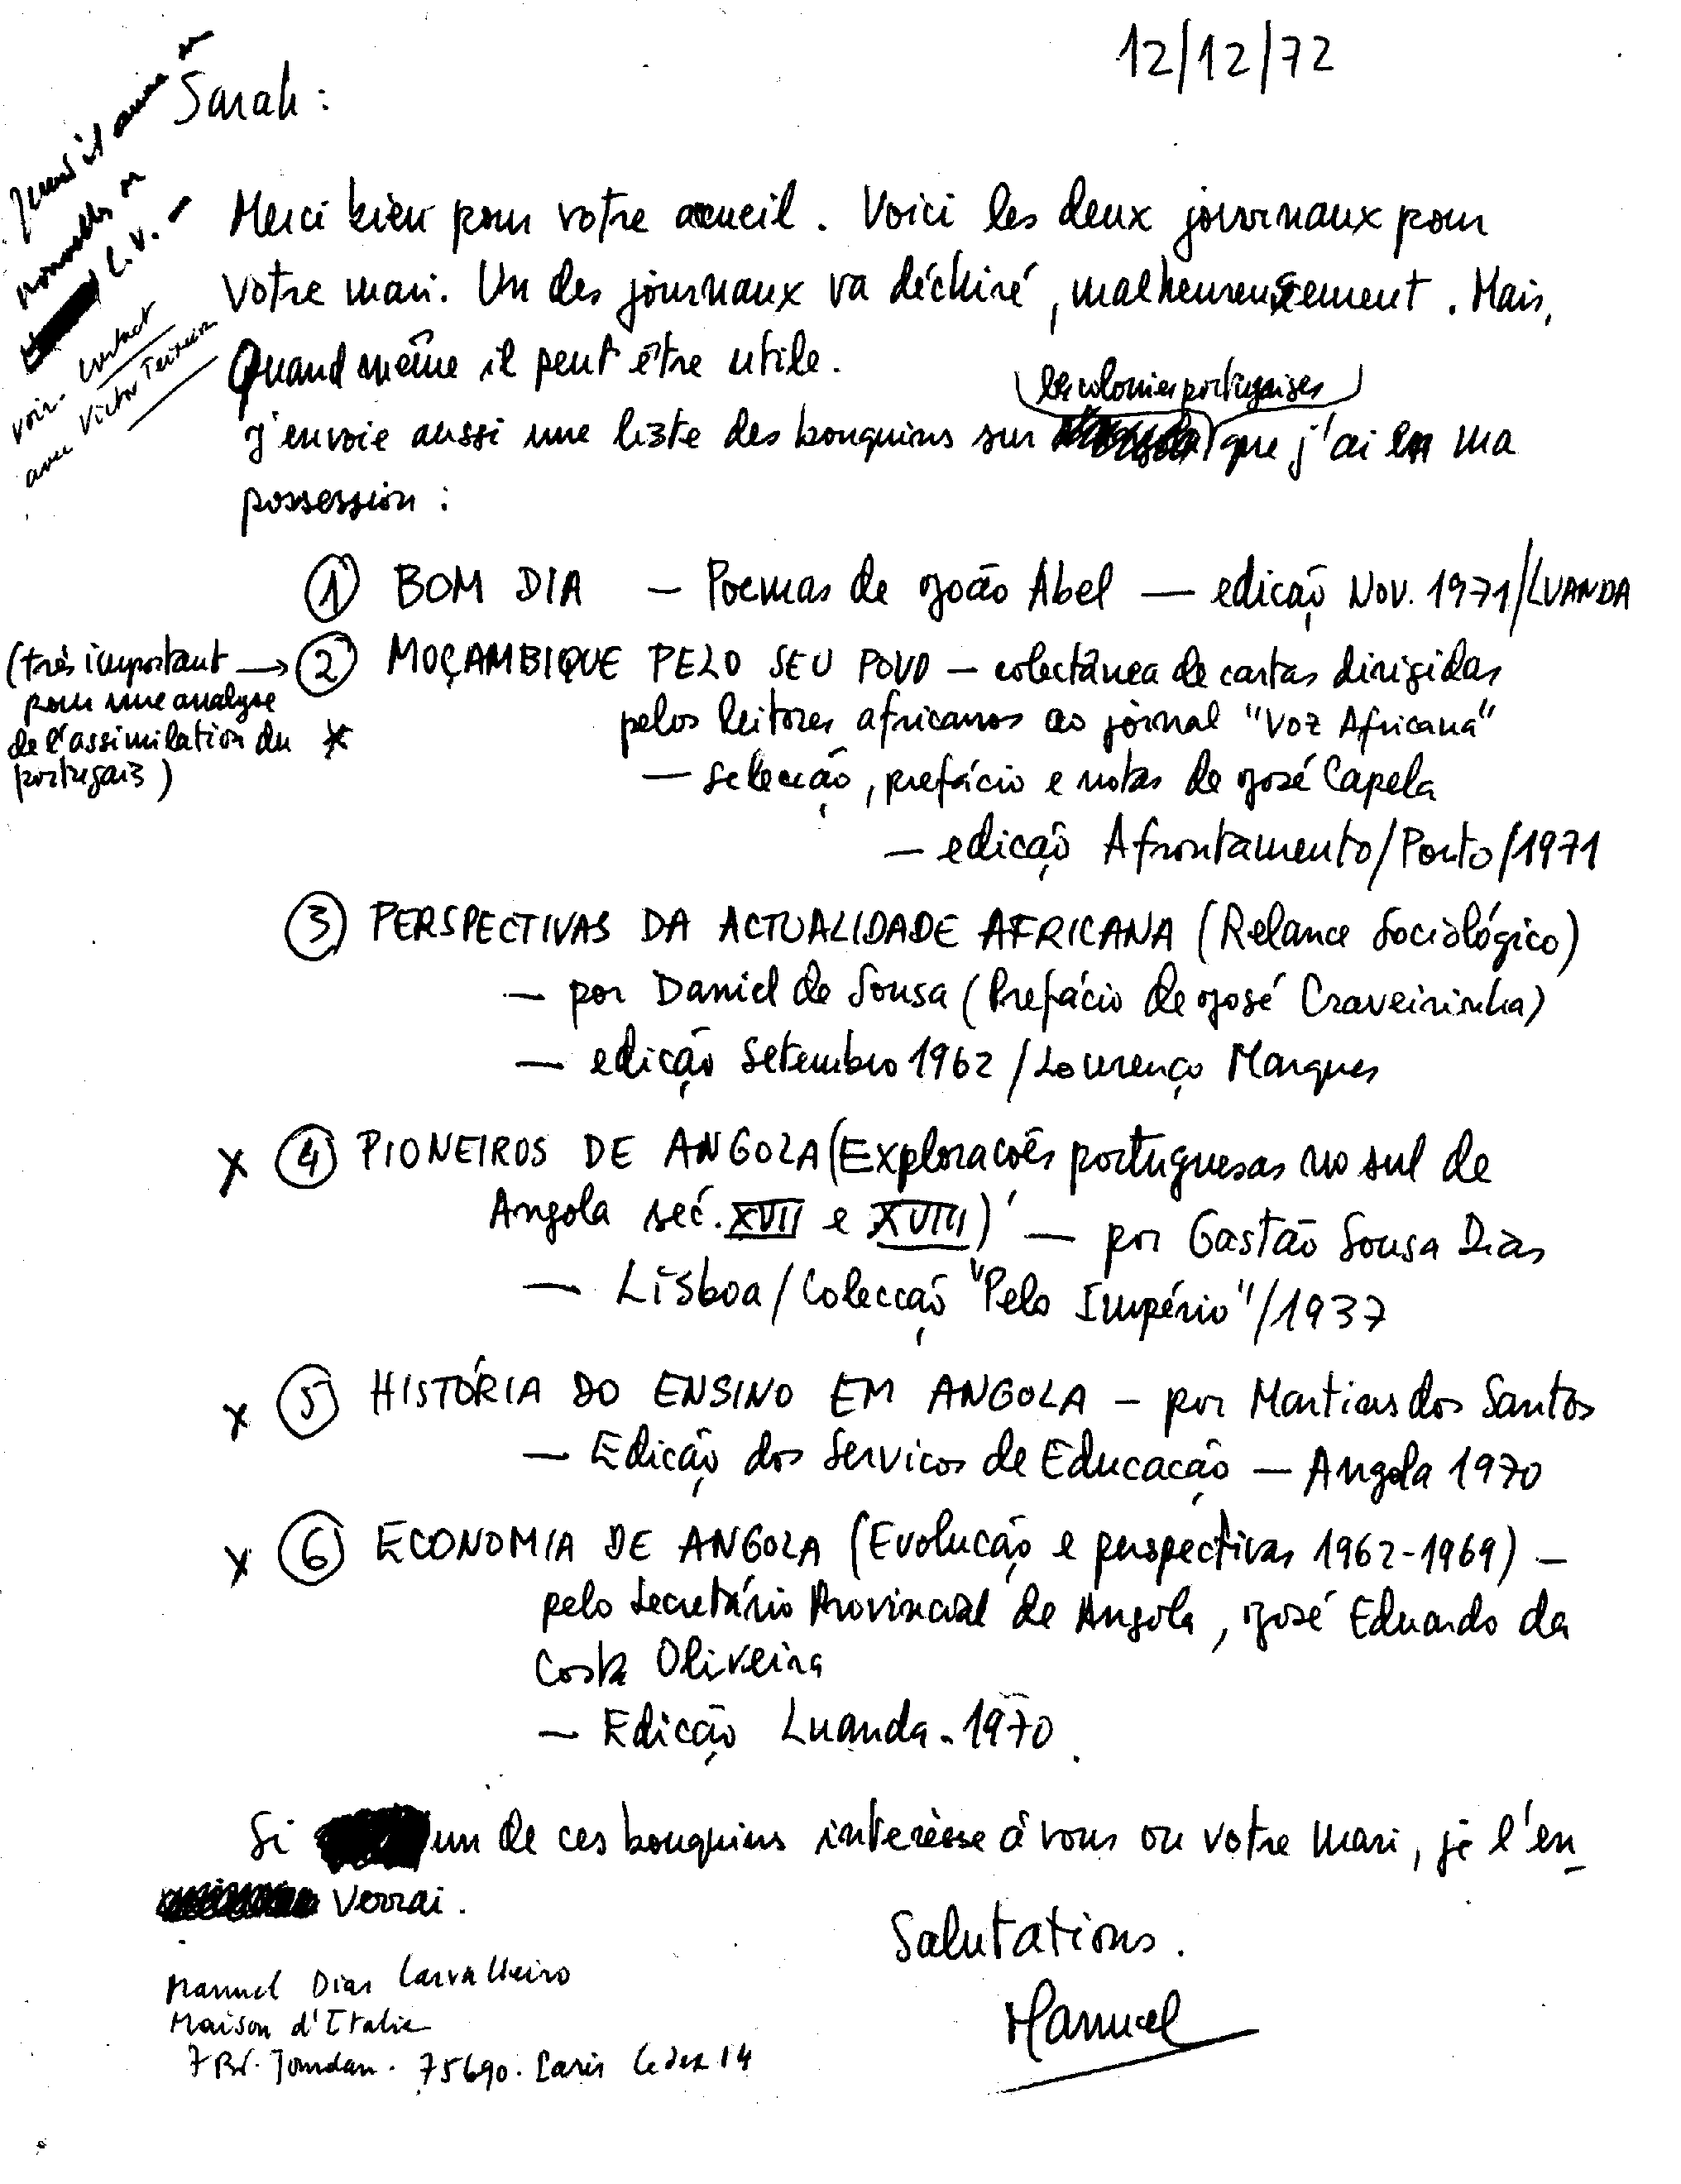 12/12/72
Sarah :
voir contact
avec Victor Teixeira
Merci bien pour votre accueil. Voici les deux journaux pour
votre mari. Un des journaux va déchiré, malheureusement. Mais,
quand même il peut être utile.
les colonies portugaises
J'envoie aussi une liste des bouquins sur que j'ai en ma
possession :
① BOM DIA — Poemas de João Abel — edição Nov. 1971/LUANDA
(très important → ② MOÇAMBIQUE PELO SEU POVO — colectânea de cartas dirigidas
pour une analyse
pelos leitores africanos ao jornal "Voz Africana"
de l'assimilation du *
portugais)
— selecção, prefácio e notas de José Capela
— edição Afrontamento/Porto/1971
③ PERSPECTIVAS DA ACTUALIDADE AFRICANA (Relance Sociológico)
— por Daniel de Sousa (Prefácio de José Craveirinha)
— edição Setembro 1962 / Lourenço Marques
x ④ PIONEIROS DE ANGOLA (Explorações portuguesas no sul de
Angola séc. XVII e XVIII) — por Gastão Sousa Dias
— Lisboa/Colecção "Pelo Império"/1937
x ⑤ HISTÓRIA DO ENSINO EM ANGOLA — por Martins dos Santos
— Edição dos Serviços de Educação — Angola 1970
x ⑥ ECONOMIA DE ANGOLA (Evolução e perspectivas 1962-1969) —
pelo Secretário Provincial de Angola, José Eduardo da
Costa Oliveira
— Edição Luanda - 1970.
Si un de ces bouquins interèsse à vous ou votre mari, je l'en-
verrai.
Salutations.
Manuel
Manuel Dias Carvalheiro
Maison d'Italie
7 Bd. Jourdan. 75690. Paris Cedex 14